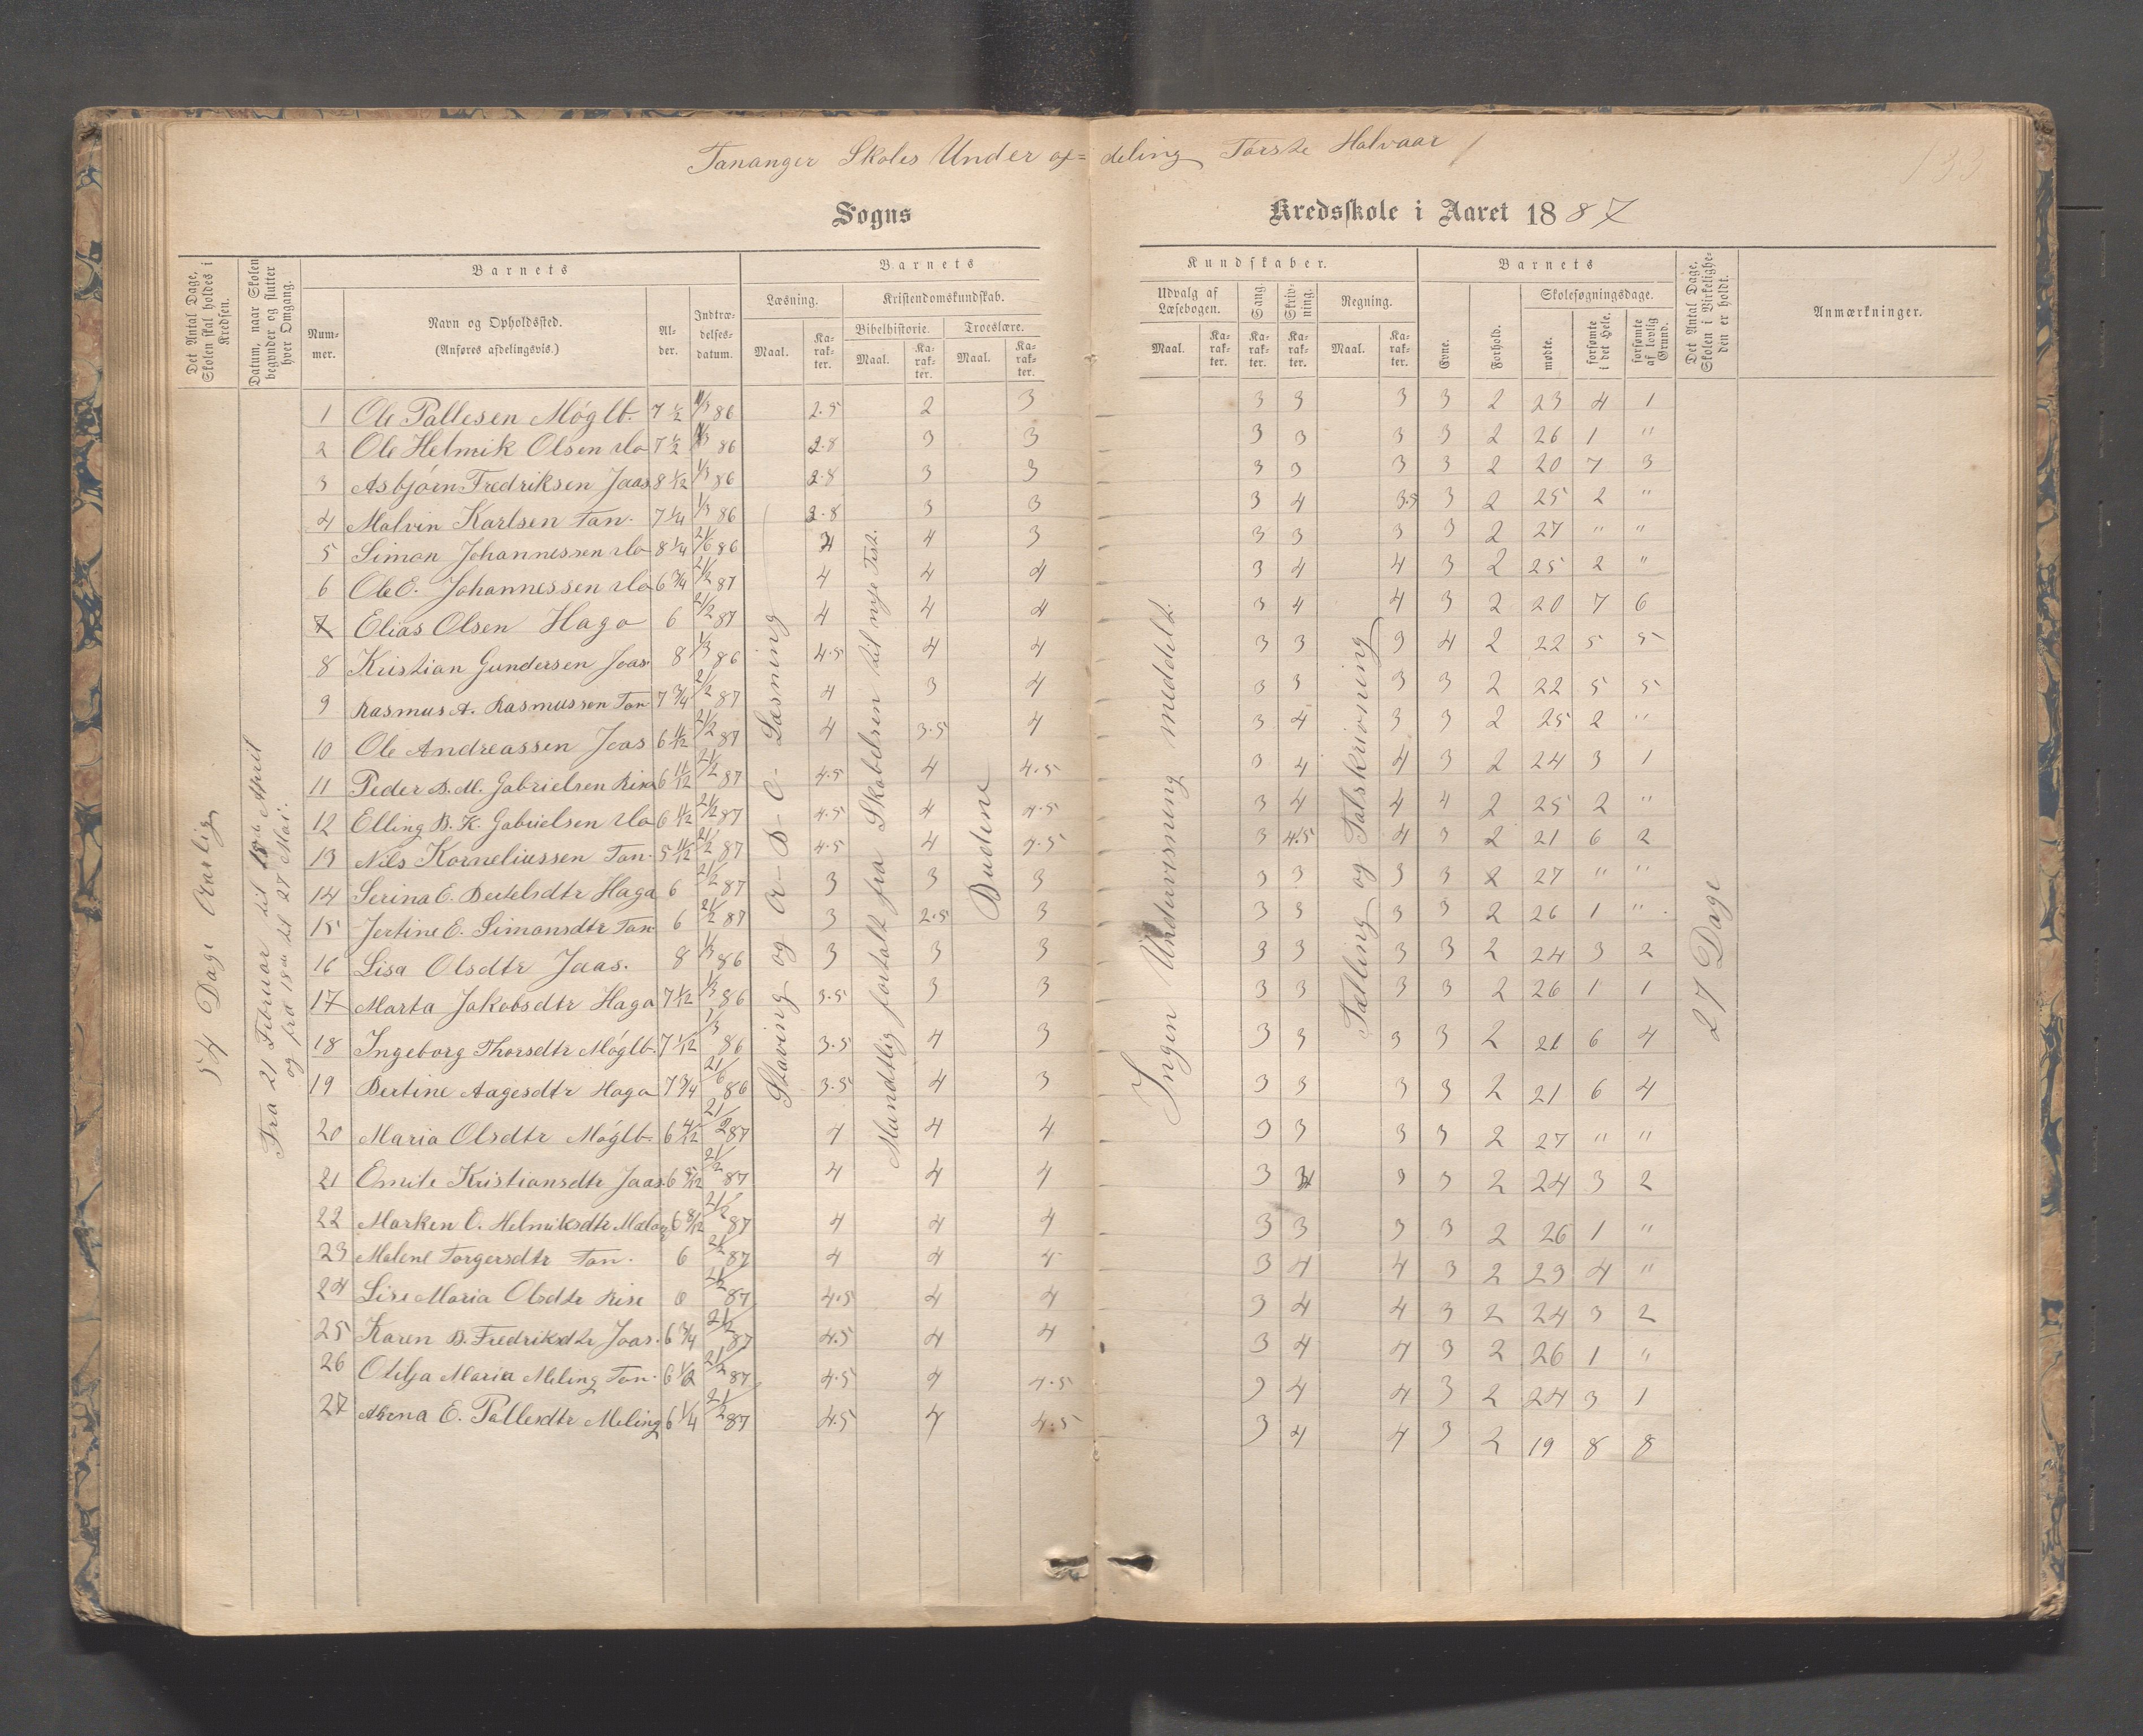 Tananger Skoles Underaf=deling Første Halvaar
133
Sogns Kredsskole i Aaret 1887
Det Antal Dage, Skolen skal holdes i Kredsen.
Datum, naar Skolen begynder og slutter hver Omgang.
Barnets
Nummer.
Navn og Opholdssted. (Anføres afdelingsvis.)
Alder.
Indtrædelsesdatum.
Barnets Kundskaber.
Læsning. Maal. Karakter.
Kristendomskundskab.
Bibelhistorie. Maal. Karakter.
Troeslære. Maal. Karakter.
Udvalg af Læsebogen. Maal. Karakter.
Sang. Karakter.
Skrivning. Karakter.
Regning. Maal. Karakter.
Barnets
Evne.
Forhold.
Skolesøgningsdage.
mødte.
forsømte i det Hele.
forsømte af lovlig Grund.
Det Antal Dage, Skolen i Virkeligheden er holdt.
Anmærkninger.
54 Dage Aarlig
Fra 21 Februar til 18de April
og fra 18de til 27 Mai.
Staving og A-B-C-Læsning
Mundtlig fortalt fra Skabelsen til nye Test.
Budene
Ingen Undervisning meddelt.
Tælling og Talskrivning
27 Dage
1 Ole Pallesen Møglb. 7 1/2 1/3 86 2.5 2 3 3 3 3 3 2 23 4 1
2 Ole Helmik Olsen do 7 1/2 1/3 86 2.8 3 3 3 3 3 3 2 26 1 "
3 Asbjørn Fredriksen Jaas 8 1/12 1/3 86 2.8 3 3 3 3 3 3 2 20 7 3
4 Malvin Karlsen Tan. 7 1/4 1/3 86 3.8 3 3 3 4 3.5 3 2 25 2 "
5 Simon Johannessen do 8 1/4 21/6 86 4 4 3 3 3 3 3 2 27 " "
6 Ole E. Johannessen do 6 3/4 21/2 87 4 4 4 3 4 4 3 2 25 2 "
7 Elias Olsen Haga 6 21/2 87 4 4 4 3 4 4 3 2 20 7 6
8 Kristian Gundersen Jaas. 8 1/3 86 4.5 4 4 3 3 3 4 2 22 5 5
9 Rasmus A. Rasmussen Tan 7 3/4 21/2 87 4 3 4 3 3 3 3 2 22 5 5
10 Ole Andreassen Jaas 6 11/12 21/2 87 4 3.5 4 3 4 3 3 2 25 2 "
11 Peder B. M. Gabrielsen Risa 6 11/12 21/2 87 4.5 4 4.5 3 4 4 3 2 24 3 1
12 Elling B. K. Gabrielsen do 6 11/12 21/2 87 4.5 4 4.5 3 4 4 4 2 25 2 "
13 Nils Korneliussen Tan. 5 11/12 21/2 87 4.5 4 4.5 3 4.5 4 3 2 21 6 2
14 Serina E. Bertelsdtr Haga 6 21/2 87 3 3 3 3 3 3 3 2 27 " "
15 Jertine E. Simonsdtr Tan 6 21/2 87 3 2.5 3 3 3 3 3 2 26 1 "
16 Lisa Olsdtr Jaas. 8 1/3 86 3 3 3 3 3 3 3 2 24 3 2
17 Marta Jakobsdtr Haga 7 1/12 1/3 86 3.5 3 3 3 3 3 3 2 26 1 1
18 Ingeborg Thorsdtr Møglb. 7 1/12 1/3 86 3.5 4 3 3 3 3 3 2 21 6 4
19 Bertine Aagesdtr Haga 7 3/4 21/6 86 3.5 4 3 3 3 3 3 2 21 6 4
20 Maria Olsdtr Møglb. 6 4/12 21/2 87 4 4 4 3 3 3 3 2 27 " "
21 Emile Kristiansdtr Jaas. 6 8/12 21/2 87 4 4 4 3 3 3 3 2 24 3 2
22 Marken E. Helmiksdtr 6 8/12 21/2 87 4 4 4 3 3 3 3 2 26 1 "
23 Malene Torgersdtr Tan. 6 21/2 87 4 4 4 3 4 4 3 2 23 4 "
24 Lise Maria Olsdtr Rise 6 21/2 87 4.5 4 4 3 4 4 3 2 24 3 2
25 Karen B. Fredriksdtr Jaas. 6 3/4 21/2 87 4.5 4 4 3 4 4 3 2 26 1 "
26 Otilja Maria Meling Tan. 6 1/2 21/2 87 4.5 4 4.5 3 4 4 3 2 24 3 1
27 E. Pallesdtr Meling 6 1/4 21/2 87 4.5 4 4.5 3 4 4 3 2 19 8 8